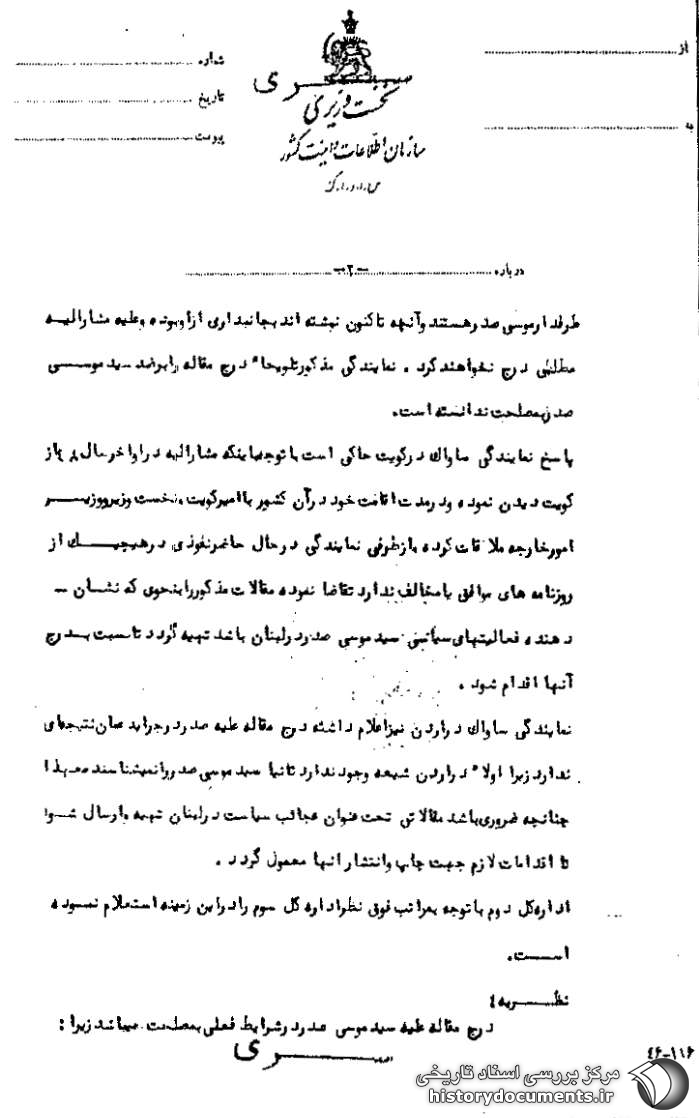 از
شماره
سری
نخست وزیری
تاریخ
به
پیوست
سازمان اطلاعات و امنیت کشور
درباره -۲-
طرفدار موسی صدر هستند وآنچه تاکنون نوشته اند بجانبداری از او بوده و علیه مشارالیه
مطلبی درج نخواهند کرد . نمایندگی مذکور تلویحا" درج مقاله را برضد سید موسی
صدر بمصلحت ندانسته است.
پاسخ نمایندگی ساواک در کویت حاکی است با توجه باینکه مشارالیه در اواخر سال از
کویت دیدن نموده و در مدت اقامت خود در آن کشور با امیر کویت و نخست وزیر و وزیر
امور خارجه ملاقات کرده و از طرفی نمایندگی در حال حاضر نفوذی در هیچیک از
روزنامه های موافق یا مخالف ندارد تقاضا نموده مقالات مذکور را بنحوی که نشان -
دهنده فعالیتهای سیاسی سید موسی صدر در لبنان باشد تهیه گردد تا نسبت بدرج
آنها اقدام شود .
نمایندگی ساواک در اردن نیز اعلام داشته درج مقاله علیه صدر در جراید عمان نتیجه‌ای
ندارد زیرا اولا" در اردن شیعه وجود ندارد ثانیا سید موسی صدر را نمیشناسند معهذا
چنانچه ضروری باشد مقالاتی تحت عنوان عجائب سیاست در لبنان تهیه و ارسال شود
تا اقدامات لازم جهت چاپ و انتشار آنها معمول گردد .
اداره کل دوم با توجه بمراتب فوق نظر اداره کل سوم را در این زمینه استعلام نموده
است.
نظریه :
درج مقاله علیه سید موسی صدر در شرایط فعلی بمصلحت نمیباشد زیرا :
سری
۴۶-۱۱۶
مرکز بررسی اسناد تاریخی
historydocuments.ir